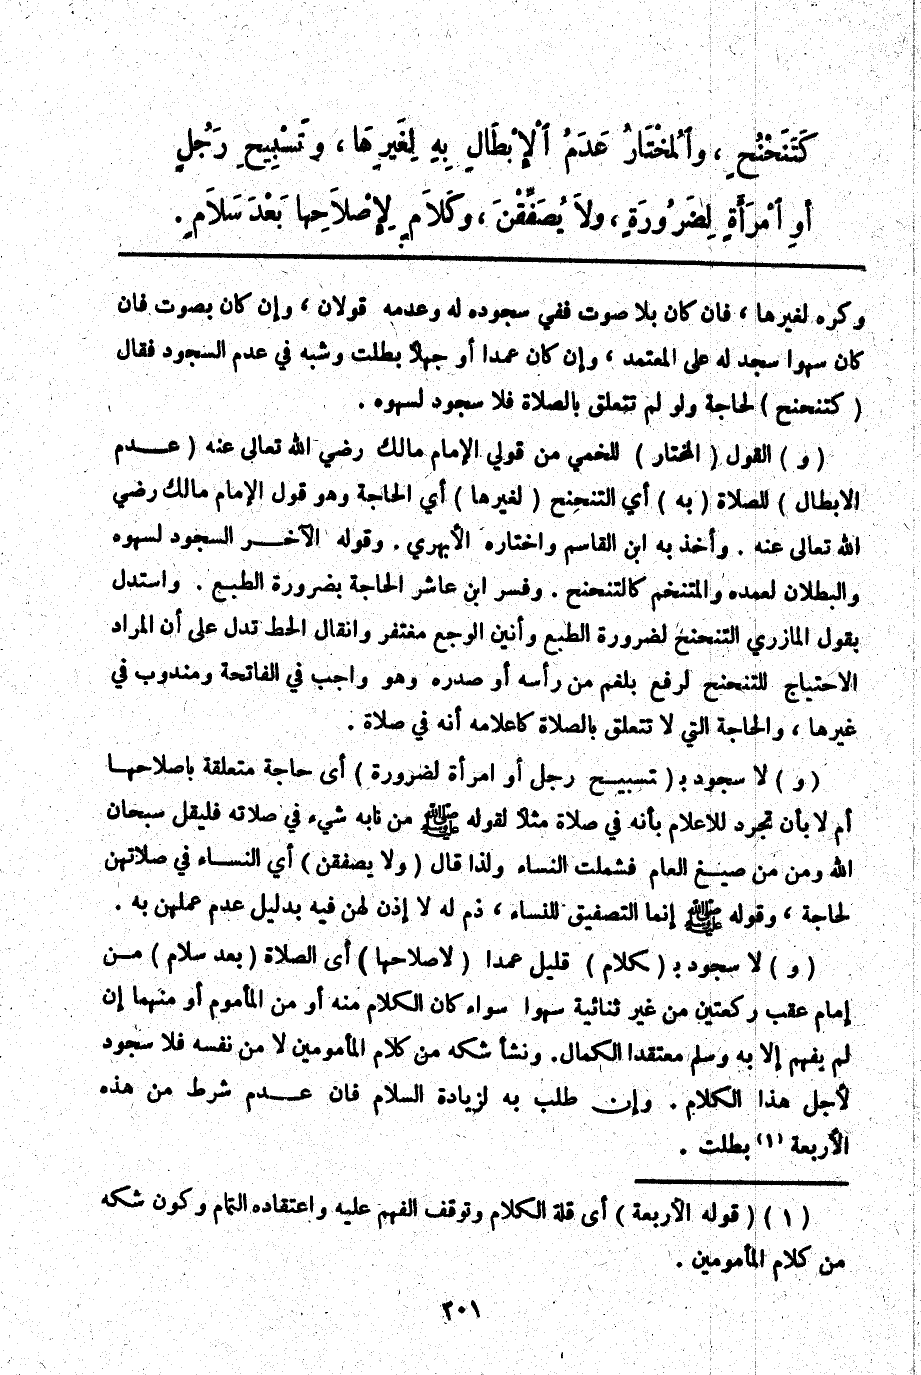 كَتَنَحْنُحٍ ، وٱلمُخْتَارُ عَدَمُ ٱلْإِبْطَالِ بِهِ لِغَيرِهَا ، وتَسْبِيحِ رَجُلٍ
أوِ ٱمْرَأَةٍ لِضَرُورَةٍ ، ولاَ يُصَفِّقْنَ ، وكَلاَمٍ لِإِصْلاَحِها بَعْدَ سَلاَمٍ .
وكره لغيرها ، فان كان بلا صوت ففي سجوده له وعدمه قولان ، وإن كان بصوت فان
كان سهوا سجد له على المعتمد ، وإن كان عمدا أو جهلاً بطلت وشبه في عدم السجود فقال
( كتنحنح ) لحاجة ولو لم تتعلق بالصلاة فلا سجود لسهوه .
( و ) القول ( المختار ) للخمي من قولي الإمام مالك رضي الله تعالى عنه ( عــدم
الابطال ) للصلاة ( به ) أي التنحنح ( لغيرها ) أي الحاجة وهو قول الإمام مالك رضي
الله تعالى عنه . وأخذ به ابن القاسم واختاره الأبهري . وقوله الآخــر السجود لسهوه
والبطلان لعمده والمتنخم كالتنحنح . وفسر ابن عاشر الحاجة بضرورة الطبع . واستدل
بقول المازري التنحنح لضرورة الطبع وأنين الوجع مغتفر وانقال الحط تدل على أن المراد
الاحتياج للتنحنح لرفع بلغم من رأسه أو صدره وهو واجب في الفاتحة ومندوب في
غيرها ، والحاجة التي لا تتعلق بالصلاة كاعلامه أنه في صلاة .
( و ) لا سجود بـ ( تسبيــح رجل أو امرأة لضرورة ) أى حاجة متعلقة باصلاحهــا
أم لا بأن تجرد للاعلام بأنه في صلاة مثلاً لقوله ﷺ من نابه شيء في صلاته فليقل سبحان
الله ومن من صيــغ العام فشملت النساء ولذا قال ( ولا يصفقن ) أي النســاء في صلاتهن
لحاجة ، وقوله ﷺ إنما التصفيق للنساء ، ذم له لا إذن لهن فيه بدليل عدم عملهن به .
( و ) لا سجود بـ ( كلام ) قليل عمدا ( لاصلاحها ) أى الصلاة ( بعد سلام ) مــن
إمام عقب ركعتين من غير ثنائية سهوا سواء كان الكلام منه أو من المأموم أو منهما إن
لم يفهم إلا به وسلم معتقدا الكمال. ونشأ شكه من كلام المأمومين لا من نفسه فلا سجود
لأجل هذا الكلام . وإن طلب به لزيادة السلام فان عــدم شرط من هذه
الأربعة (١) بطلت .
( ١ ) ( قوله الأربعة ) أى قلة الكلام وتوقف الفهم عليه واعتقاده التمام وكون شكه
من كلام المأمومين .
٢٠١